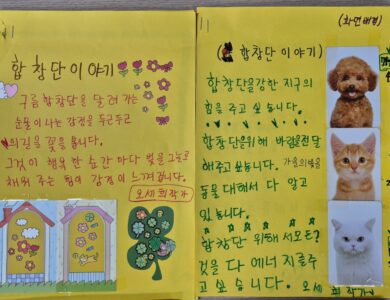 합창단 이야기
구름 합창단을 달려 가는
순을이 나는 감정을 두근두근
의 길을 꽃을 봅니다.
그것이 행복한 순간마다 빛을 그늘로
채워 주는 힘이 감정이 느껴집니다.
오세희작가
(화연배경)
(합창단 이야기)
합창단을강한 지구의
힘을 주고 싶습니다.
합창단을위해 바람을전달
해주고 싶습니다. 가을의빛을
등을 대해서 다 알고
있습니다.
합창단 위해서 모두?
것을 다 에너지를주
고 싶습니다. 오세
희 작가